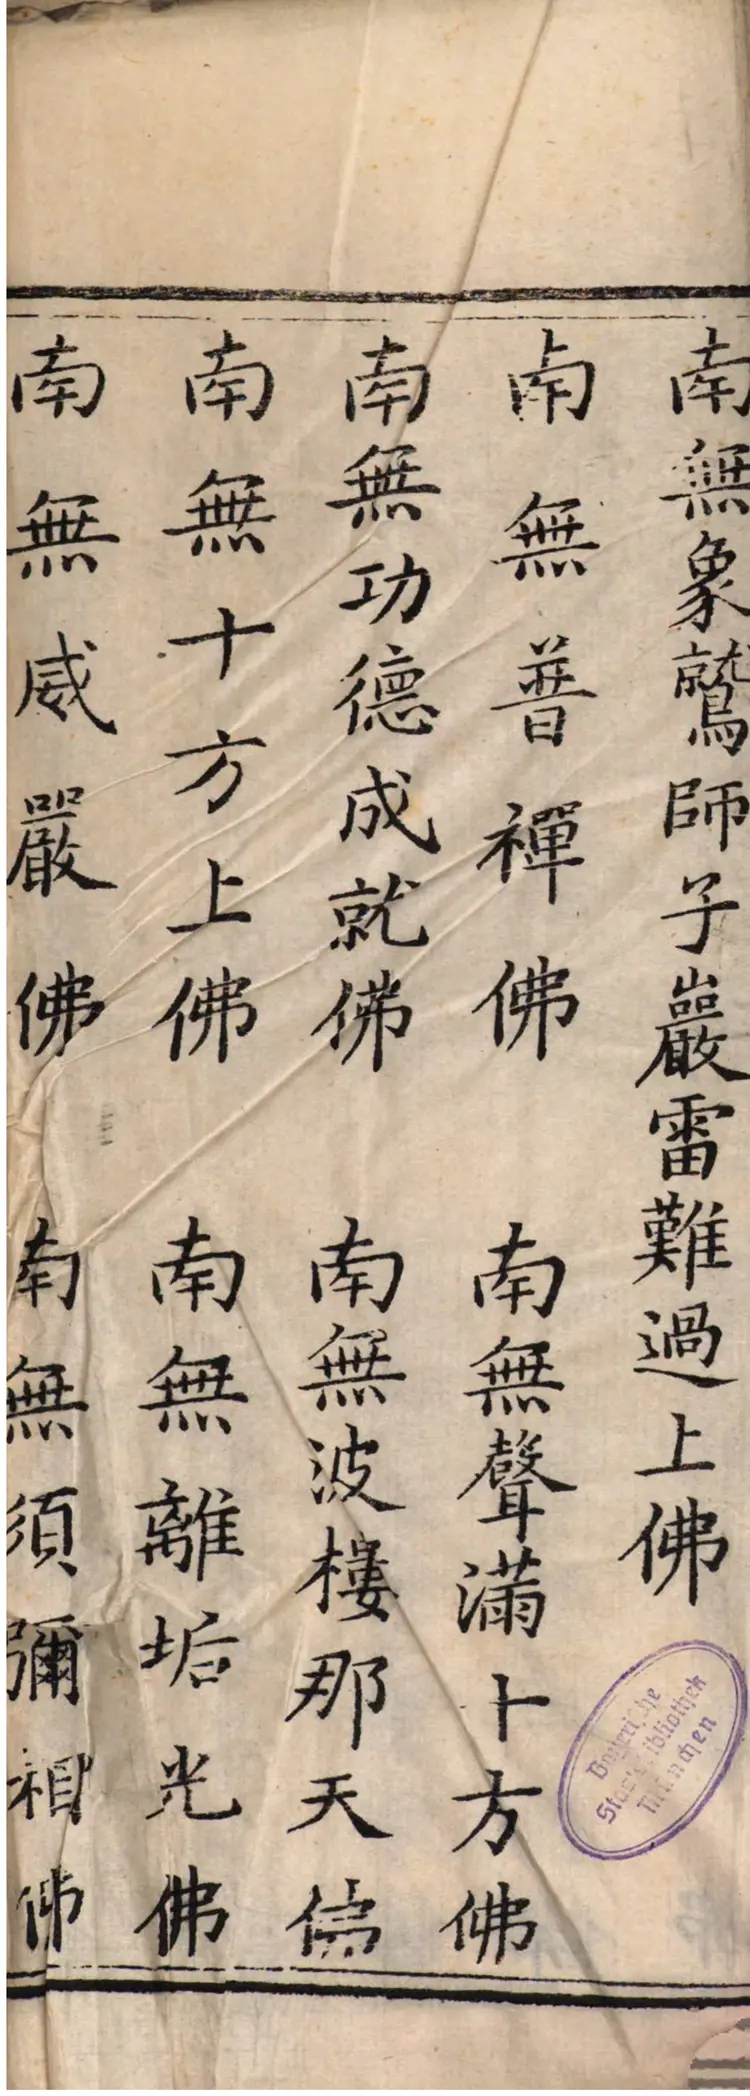 南無象鷲師子巖雷難過上佛
南無普禪佛 南無聲滿十方佛
南無功德成就佛 南無波樓那天佛
南無十方上佛 南無離垢光佛
南無威嚴佛 南無須彌相佛
Bayerische
Staatsbibliothek
München